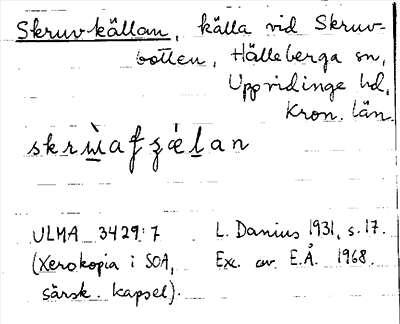 Skruvkällan, källa vid Skruv-
botten, Hälleberga sn,
Uppvidinge hd,
Kron. län.
skrẁafzǽlan
ULMA 3429:7 L. Danius 1931, s. 17.
(Xerokopia i SOA, Exc. av E.Å. 1968.
särsk. kapsel).